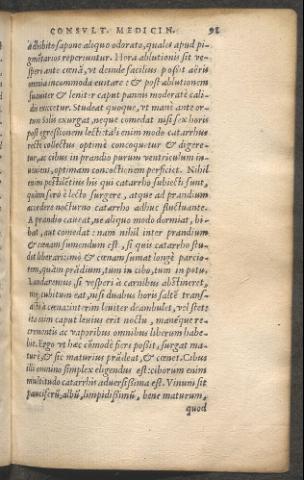 CONSVLT. MEDICIN. 91
adhibito sapone aliquo odorato, quales apud pi-
gmētarios reperiuntur. Hora ablutionis sit ve-
speri ante cœnā, vt deinde facilius possit aëris
omnia incommoda euitare: & post ablutionem
suauiter & leniter caput pannis moderatè cali-
dis exicetur. Studeat quoque, vt manè ante or-
tum solis exurgat, neque comedat nisi sex horis
post egressionem lecti: tali enim modo catarrhus
rectè collectus optimè concoquetur & digere-
tur, ac cibus in prandio purum ventriculum in-
ueniens, optimam concoctionem perficiet. Nihil
enim pestilētius his qui catarrho subiecti sunt,
quàm serò è lecto surgere, atque ad prandium
accedere nocturno catarrho adhuc fluctuante.
A prandio caueat, ne aliquo modo dormiat, bi-
bat, aut comedat: nam nihil inter prandium
& cœnam sumendum est, si quis catarrho stu-
det liberari: imò & cœnam sumat longè parcio-
rem, quàm prādium, tum in cibo, tum in potu.
Laudaremus, si vesperi à carnibus abstineret,
nec cubitum eat, nisi duabus horis saltē trans-
actis à cœna: interim leuiter deambulet, vel stet:
ita enim caput leuius erit noctu, manéque ex-
crementis ac vaporibus omnibus liberum habe-
bit. Ergo vt hæc cōmodè fieri possit, surgat ma-
turè, & sic maturius prādeat, & cœnet. Cibus
illi omnino simplex eligendus est: ciborum enim
multitudo catarrhis aduersissima est. Vinum sit
pauciferū, albū, limpidissimū, bene maturum,
quod